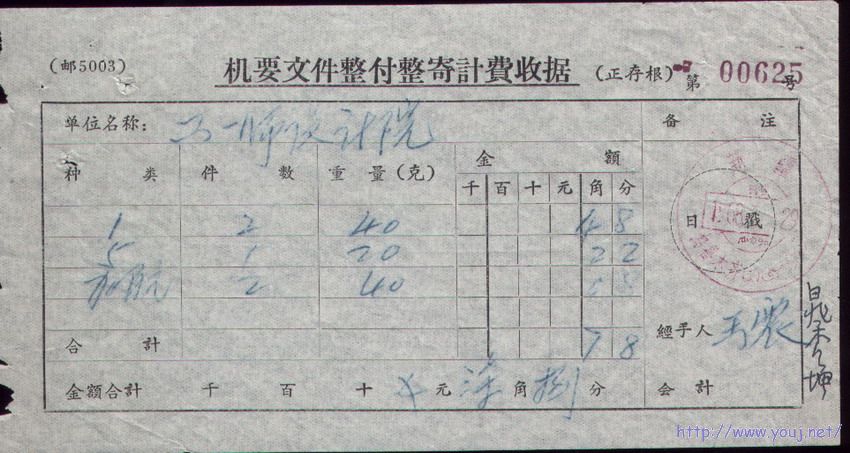 (邮5003) 机要文件整付整寄計費收据 (正存根) 第 00625 号
单位名称: 工一师设计院 备 注
种 类 件 数 重 量(克) 金 額
千 百 十 元 角 分
1 2 40 4 8
日 戳
5 1 20 2 2
2 40
合 計 7 8
經手人 王震
金額合計 千 百 十 元 柒 角 捌 分 会 計
http://www.youj.net/